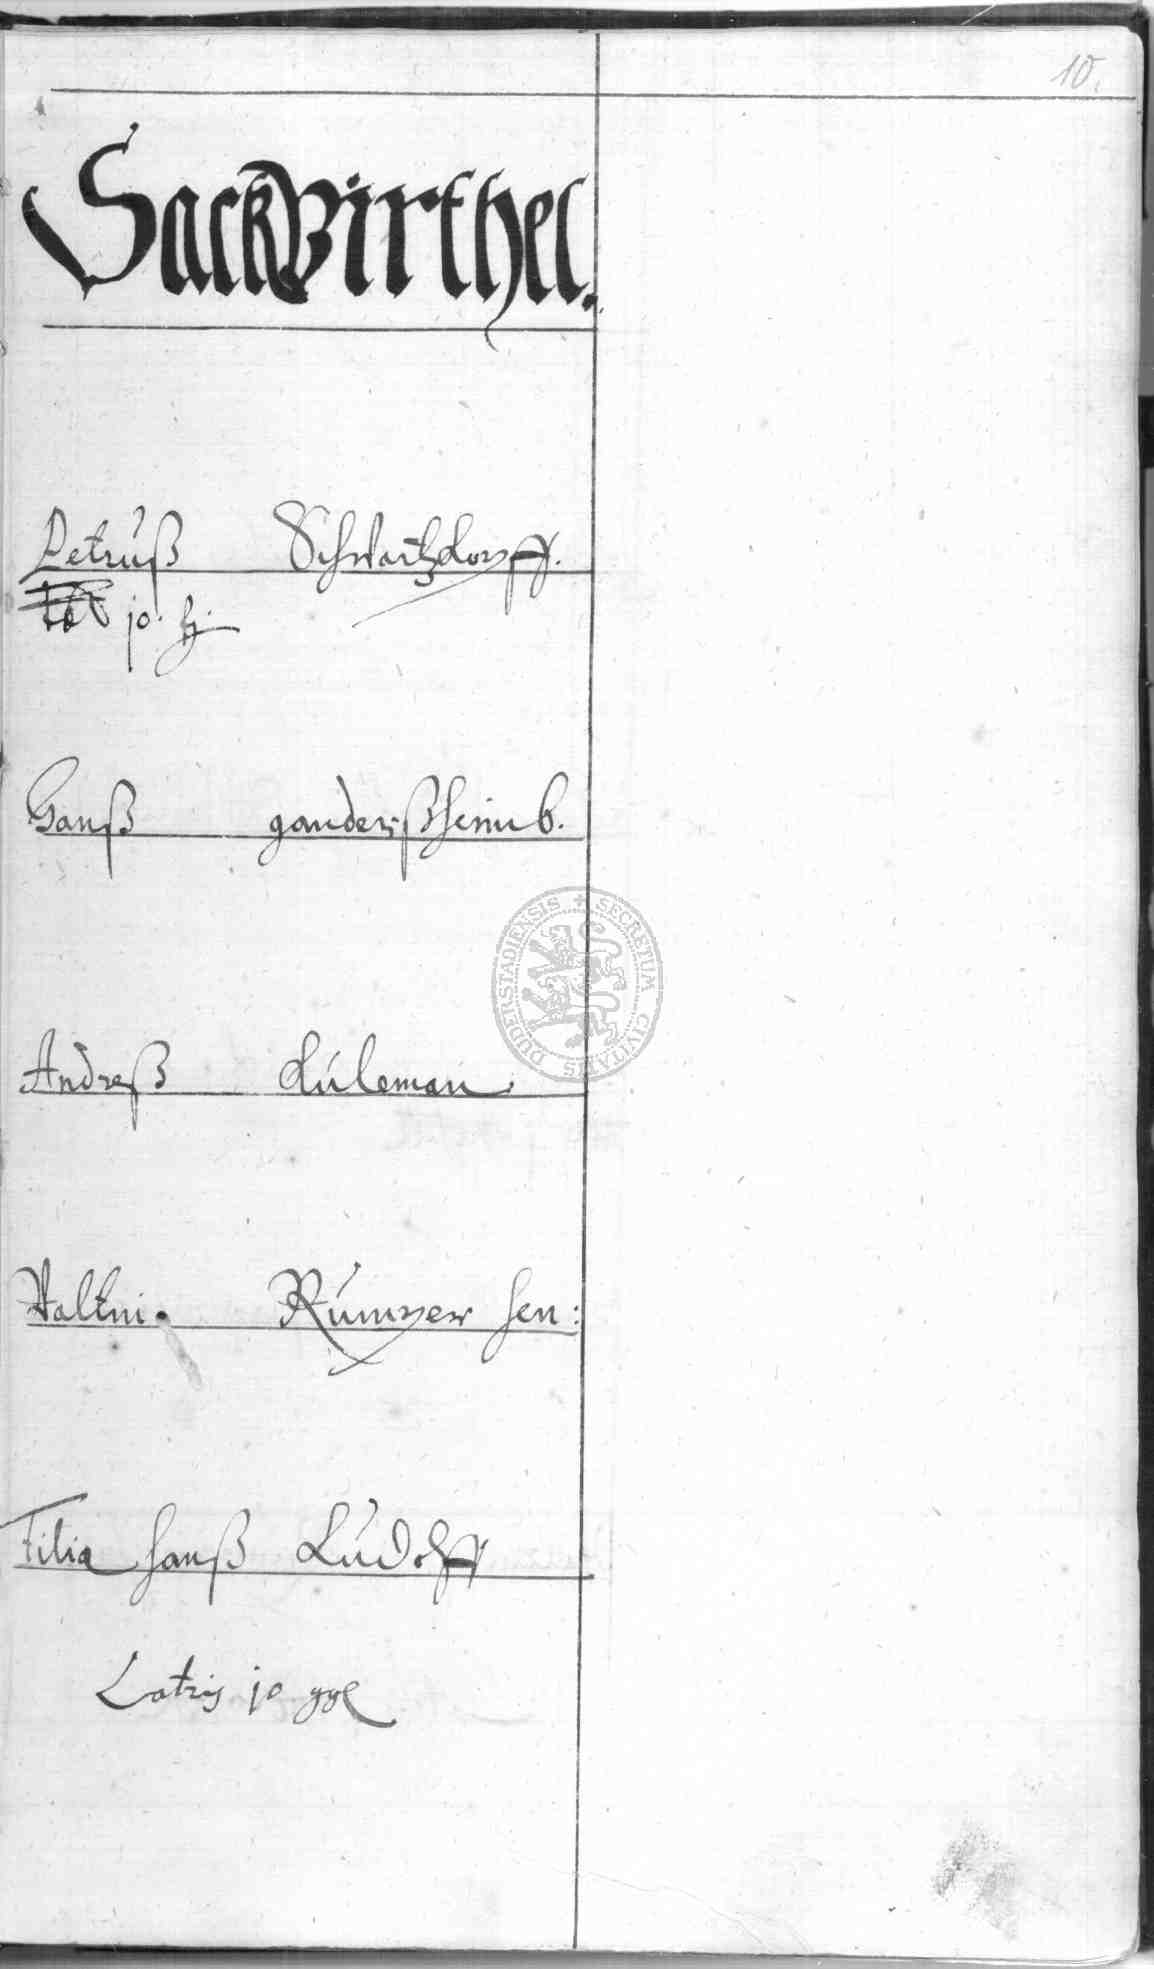 10.
Sackvirthel.
Petruß Schwartzdorff.
Hanß ganderßheimb.
Andreß Küleman
Valtin
Filia Hanß Ludolff
Latris jo
DUDERSTADIENSIS + SECRETUM CIVITATIS